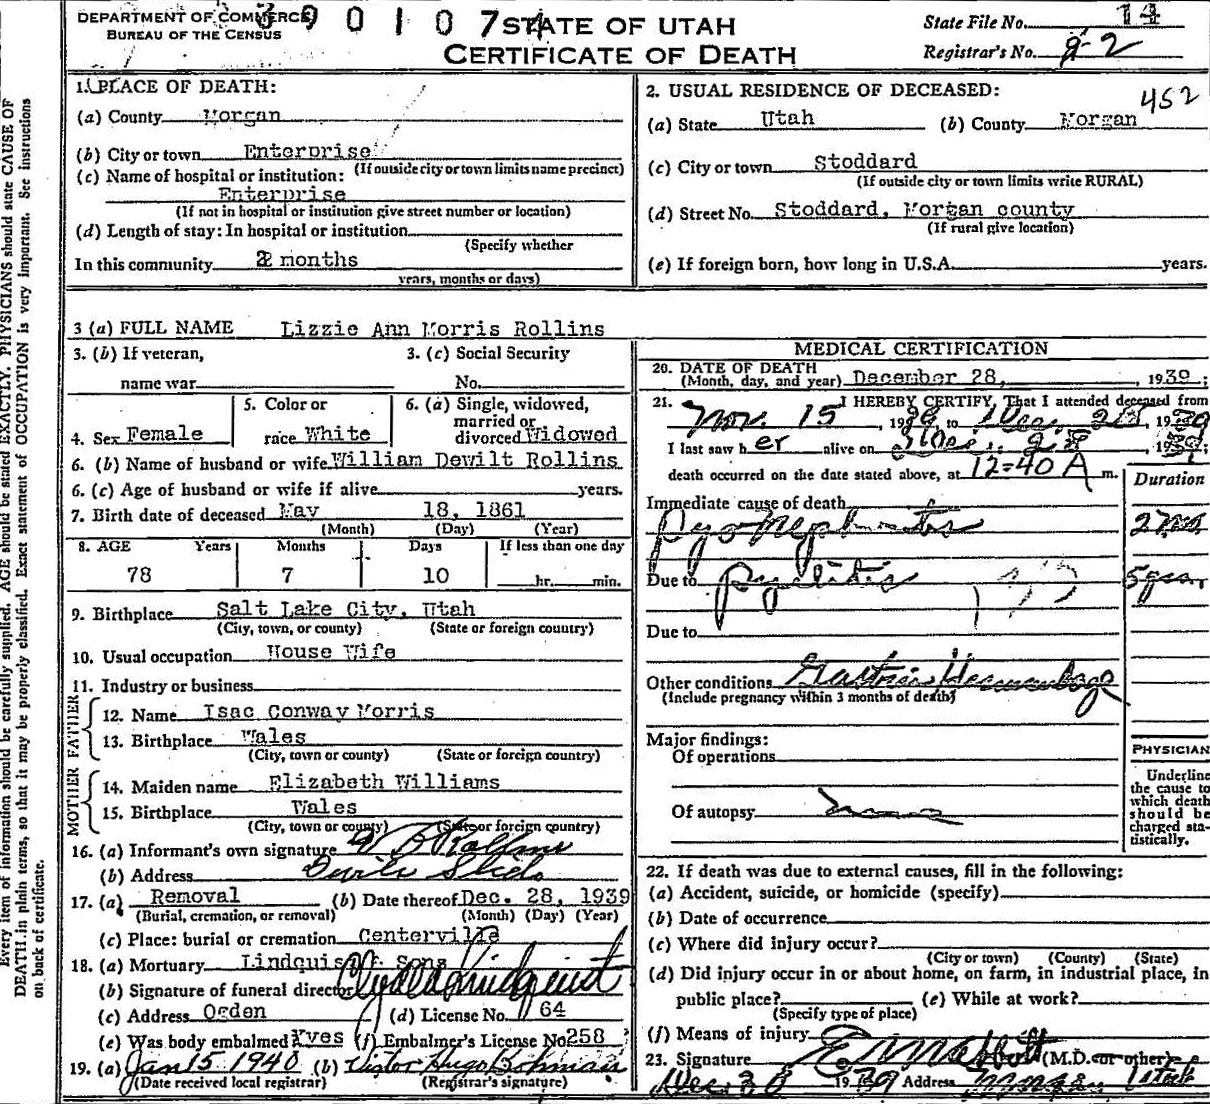 DEPARTMENT OF COMMERCE
BUREAU OF THE CENSUS
390107
STATE OF UTAH
CERTIFICATE OF DEATH
State File No. 14
Registrar's No. 2-2
452
1. PLACE OF DEATH:
(a) County Morgan
(b) City or town Enterprise
(If outside city or town limits name precinct)
(c) Name of hospital or institution:
Enterprise
(If not in hospital or institution give street number or location)
(d) Length of stay: In hospital or institution
(Specify whether
In this community 2 months
years, months or days)
2. USUAL RESIDENCE OF DECEASED:
(a) State Utah (b) County Morgan
(c) City or town Stoddard
(If outside city or town limits write RURAL)
(d) Street No. Stoddard, Morgan county
(If rural give location)
(e) If foreign born, how long in U.S.A. years.
3 (a) FULL NAME Lizzie Ann Morris Rollins
3. (b) If veteran,
name war
3. (c) Social Security
No.
4. Sex Female
5. Color or
race White
6. (a) Single, widowed,
married or
divorced Widowed
6. (b) Name of husband or wife William Dewilt Rollins
6. (c) Age of husband or wife if alive years.
7. Birth date of deceased May 18, 1861
(Month) (Day) (Year)
8. AGE Years Months Days If less than one day
78 7 10 hr. min.
9. Birthplace Salt Lake City, Utah
(City, town, or county) (State or foreign country)
10. Usual occupation House Wife
11. Industry or business
FATHER
12. Name Isac Conway Morris
13. Birthplace Wales
(City, town or county) (State or foreign country)
MOTHER
14. Maiden name Elizabeth Williams
15. Birthplace Wales
(City, town or county) (State or foreign country)
16. (a) Informant's own signature W D Rollins
(b) Address Devils Slide
17. (a) Removal (b) Date thereof Dec. 28, 1939
(Burial, cremation, or removal) (Month) (Day) (Year)
(c) Place: burial or cremation Centerville
18. (a) Mortuary Lindquist & Sons
(b) Signature of funeral director Clyde Lindquist
(c) Address Ogden (d) License No. 64
(e) Was body embalmed yes (f) Embalmer's License No 258
19. (a) Jan 15 1940 (b) Victor Hugo Bohman
(Date received local registrar) (Registrar's signature)
MEDICAL CERTIFICATION
20. DATE OF DEATH
(Month, day, and year) December 28, 1939;
21. I HEREBY CERTIFY, That I attended deceased from
Nov. 15, 1939 to Dec. 28 1939
I last saw her alive on Dec. 28, 1939
death occurred on the date stated above, at 12=40 A m.
Duration
Immediate cause of death
Pyonephritis 2 mo
Due to Pyelitis 5 year
133
Due to
Other conditions Gastric Hemorrhage
(Include pregnancy within 3 months of death)
Major findings:
Of operations
Of autopsy none
PHYSICIAN
Underline
the cause to
which death
should be
charged sta-
tistically.
22. If death was due to external causes, fill in the following:
(a) Accident, suicide, or homicide (specify)
(b) Date of occurrence
(c) Where did injury occur?
(City or town) (County) (State)
(d) Did injury occur in or about home, on farm, in industrial place, in
public place? (e) While at work?
(Specify type of place)
(f) Means of injury
23. Signature (M.D. or other)
Dec 30 1939 Address Morgan Utah
Every item of information should be carefully supplied. AGE should be stated EXACTLY. PHYSICIANS should state CAUSE OF
DEATH in plain terms, so that it may be properly classified. Exact statement of OCCUPATION is very important. See instructions
on back of certificate.